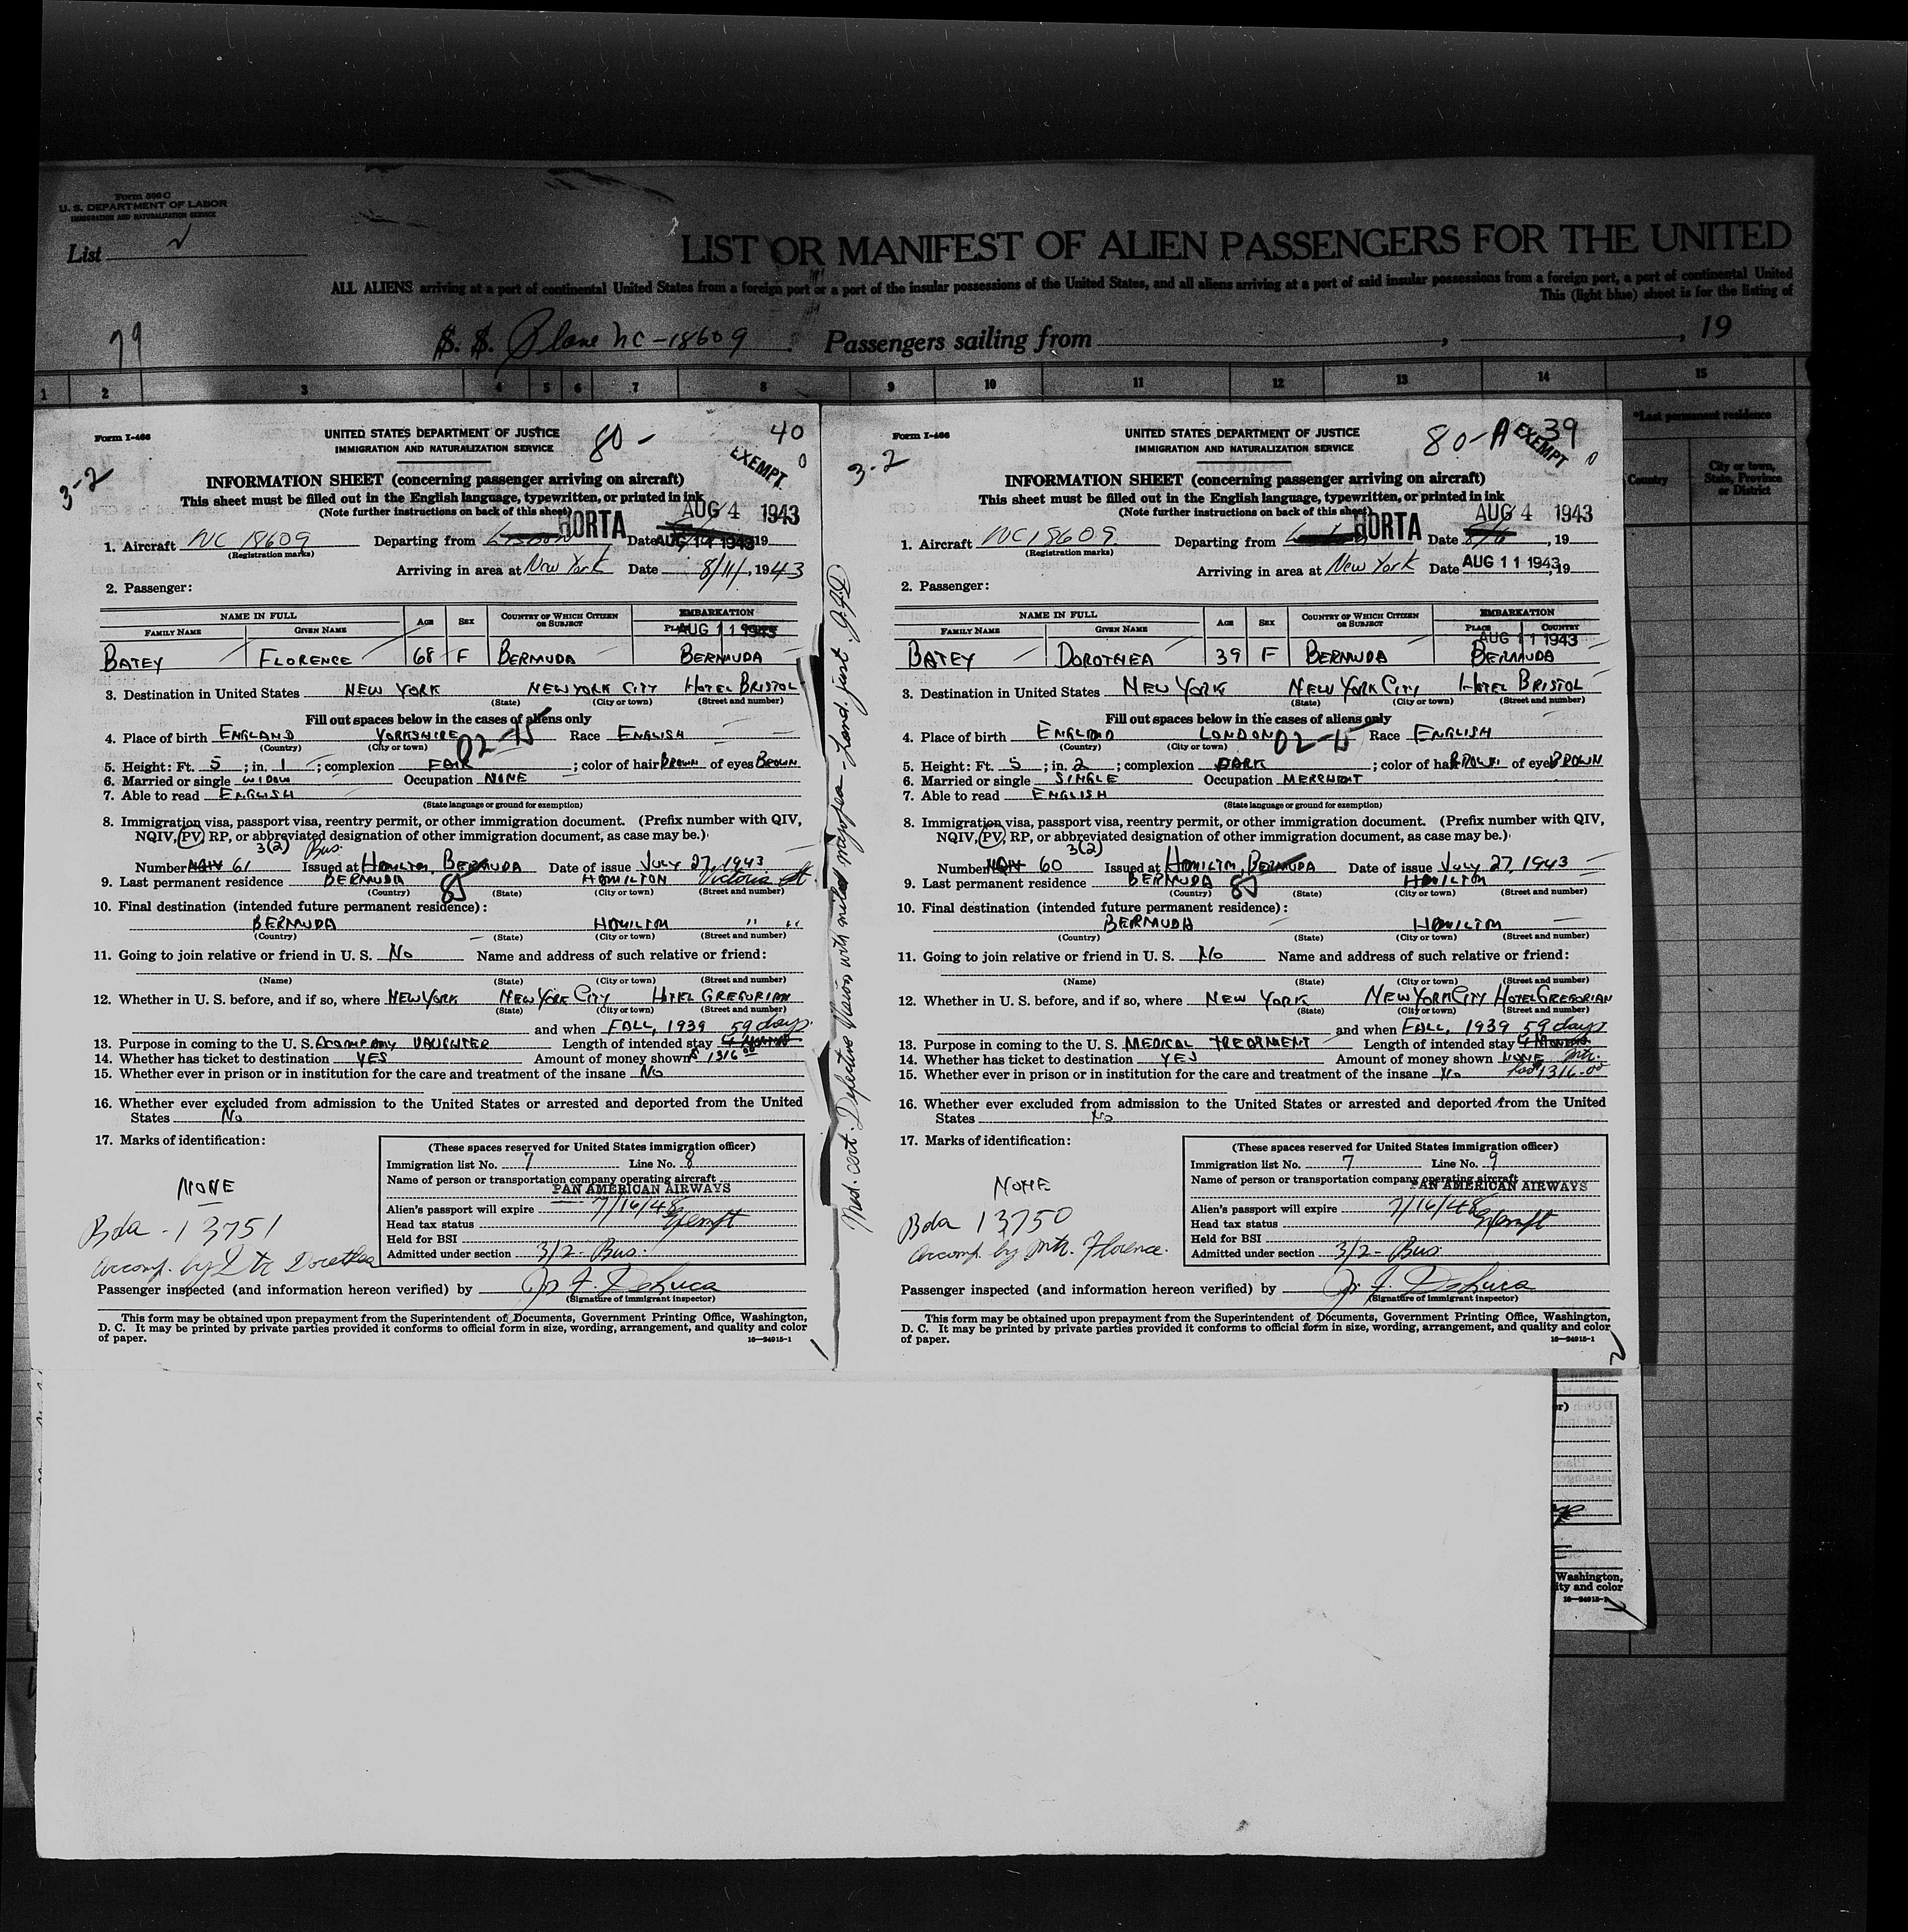 Form 506C
U. S. DEPARTMENT OF LABOR
IMMIGRATION AND NATURALIZATION SERVICE
List
LIST OR MANIFEST OF ALIEN PASSENGERS FOR THE UNITED
ALL ALIENS arriving at a port of continental United States from a foreign port or a port of the insular possessions of the United States, and all aliens arriving at a port of said insular possessions from a foreign port, a part of continental United
This (light blue) sheet is for the listing of
79
S. S. Plane NC-18609 Passengers sailing from , , 19
1 2 3 4 5 6 7 8 9 10 11 12 13 14 15
*Last permanent residence
Country
City or town, State, Province or District
Form I-466
UNITED STATES DEPARTMENT OF JUSTICE
IMMIGRATION AND NATURALIZATION SERVICE
80-
40
EXEMPT
0
3-2
INFORMATION SHEET (concerning passenger arriving on aircraft)
This sheet must be filled out in the English language, typewritten, or printed in ink
(Note further instructions on back of this sheet)
HORTA AUG 4 1943
1. Aircraft NC 18609 Departing from Lisbon Date AUG 11 1943 19
(Registration marks)
Arriving in area at New York Date 8/11/, 1943
2. Passenger:
NAME IN FULL AGE SEX COUNTRY OF WHICH CITIZEN OR SUBJECT EMBARKATION
FAMILY NAME GIVEN NAME AUG 11 1943
BATEY FLORENCE 68 F BERMUDA BERMUDA
3. Destination in United States NEW YORK NEW YORK CITY HOTEL BRISTOL
(State) (City or town) (Street and number)
Fill out spaces below in the cases of aliens only
4. Place of birth ENGLAND YORKSHIRE 02-15 Race ENGLISH
(Country) (City or town)
5. Height: Ft. 5; in. 1; complexion FAIR; color of hair BROWN of eyes BROWN
6. Married or single WIDOW Occupation NONE
7. Able to read ENGLISH
(State language or ground for exemption)
8. Immigration visa, passport visa, reentry permit, or other immigration document. (Prefix number with QIV,
NQIV, PV, RP, or abbreviated designation of other immigration document, as case may be.)
3(2) Bus.
Number NQIV 61 Issued at HAMILTON, BERMUDA Date of issue JULY 27, 1943
9. Last permanent residence BERMUDA 85 HAMILTON Victoria St
(Country) (State) (City or town) (Street and number)
10. Final destination (intended future permanent residence):
BERMUDA HAMILTON " "
(Country) (State) (City or town) (Street and number)
11. Going to join relative or friend in U. S. No Name and address of such relative or friend:
(Name) (State) (City or town) (Street and number)
12. Whether in U. S. before, and if so, where NEW YORK NEW YORK CITY HOTEL GREGORIAN
(State) (City or town) (Street and number)
and when FALL, 1939 59 days
13. Purpose in coming to the U. S. ACCOMPANY DAUGHTER Length of intended stay
14. Whether has ticket to destination YES Amount of money shown $1316.00
15. Whether ever in prison or in institution for the care and treatment of the insane No
16. Whether ever excluded from admission to the United States or arrested and deported from the United
States No
17. Marks of identification:
NONE
Bda - 13751
Accomp. by Dtr Dorothea
(These spaces reserved for United States immigration officer)
Immigration list No. 7 Line No. 8
Name of person or transportation company operating aircraft
PAN AMERICAN AIRWAYS
Alien's passport will expire 7/16/48
Head tax status Exempt
Held for BSI
Admitted under section 3/2 - Bus.
Passenger inspected (and information hereon verified) by Jr. F. DeLuca
(Signature of immigrant inspector)
This form may be obtained upon prepayment from the Superintendent of Documents, Government Printing Office, Washington,
D. C. It may be printed by private parties provided it conforms to official form in size, wording, arrangement, and quality and color
of paper. 16—24915-1
1
Med. cert. Defective Vision with mild myopia - Land. just.
Form I-466
UNITED STATES DEPARTMENT OF JUSTICE
IMMIGRATION AND NATURALIZATION SERVICE
80-A
39
EXEMPT
0
3-2
INFORMATION SHEET (concerning passenger arriving on aircraft)
This sheet must be filled out in the English language, typewritten, or printed in ink
(Note further instructions on back of this sheet)
HORTA AUG 4 1943
1. Aircraft NC18609 Departing from Date 8/6, 19
(Registration marks)
Arriving in area at New York Date AUG 11 1943, 19
2. Passenger:
NAME IN FULL AGE SEX COUNTRY OF WHICH CITIZEN OR SUBJECT EMBARKATION
FAMILY NAME GIVEN NAME PLACE COUNTRY
AUG 11 1943
BATEY DOROTHEA 39 F BERMUDA BERMUDA
3. Destination in United States NEW YORK NEW YORK CITY HOTEL BRISTOL
(State) (City or town) (Street and number)
Fill out spaces below in the cases of aliens only
4. Place of birth ENGLAND LONDON 02-15 Race ENGLISH
(Country) (City or town)
5. Height: Ft. 5; in. 2; complexion DARK; color of hair BROWN of eyes BROWN
6. Married or single SINGLE Occupation MERCHANT
7. Able to read ENGLISH
(State language or ground for exemption)
8. Immigration visa, passport visa, reentry permit, or other immigration document. (Prefix number with QIV,
NQIV, PV, RP, or abbreviated designation of other immigration document, as case may be.)
3(2)
Number NQIV 60 Issued at HAMILTON, BERMUDA Date of issue JULY 27, 1943
9. Last permanent residence BERMUDA 85 HAMILTON
(Country) (State) (City or town) (Street and number)
10. Final destination (intended future permanent residence):
BERMUDA HAMILTON
(Country) (State) (City or town) (Street and number)
11. Going to join relative or friend in U. S. No Name and address of such relative or friend:
(Name) (State) (City or town) (Street and number)
12. Whether in U. S. before, and if so, where NEW YORK NEW YORK CITY HOTEL GREGORIAN
(State) (City or town) (Street and number)
and when FALL, 1939 59 days
13. Purpose in coming to the U. S. MEDICAL TREATMENT Length of intended stay
14. Whether has ticket to destination YES Amount of money shown NONE Mtr.
15. Whether ever in prison or in institution for the care and treatment of the insane No has 1316.00
16. Whether ever excluded from admission to the United States or arrested and deported from the United
States No
17. Marks of identification:
NONE
Bda 13750
Accomp. by Mtr. Florence.
(These spaces reserved for United States immigration officer)
Immigration list No. 7 Line No. 9
Name of person or transportation company operating aircraft
PAN AMERICAN AIRWAYS
Alien's passport will expire 7/16/48
Head tax status Exempt
Held for BSI
Admitted under section 3/2 - Bus.
Passenger inspected (and information hereon verified) by Jr. F. DeLuca
(Signature of immigrant inspector)
This form may be obtained upon prepayment from the Superintendent of Documents, Government Printing Office, Washington,
D. C. It may be printed by private parties provided it conforms to official form in size, wording, arrangement, and quality and color
of paper. 16—24915-1
2
er)
Washington,
ity and color
16—24915-1